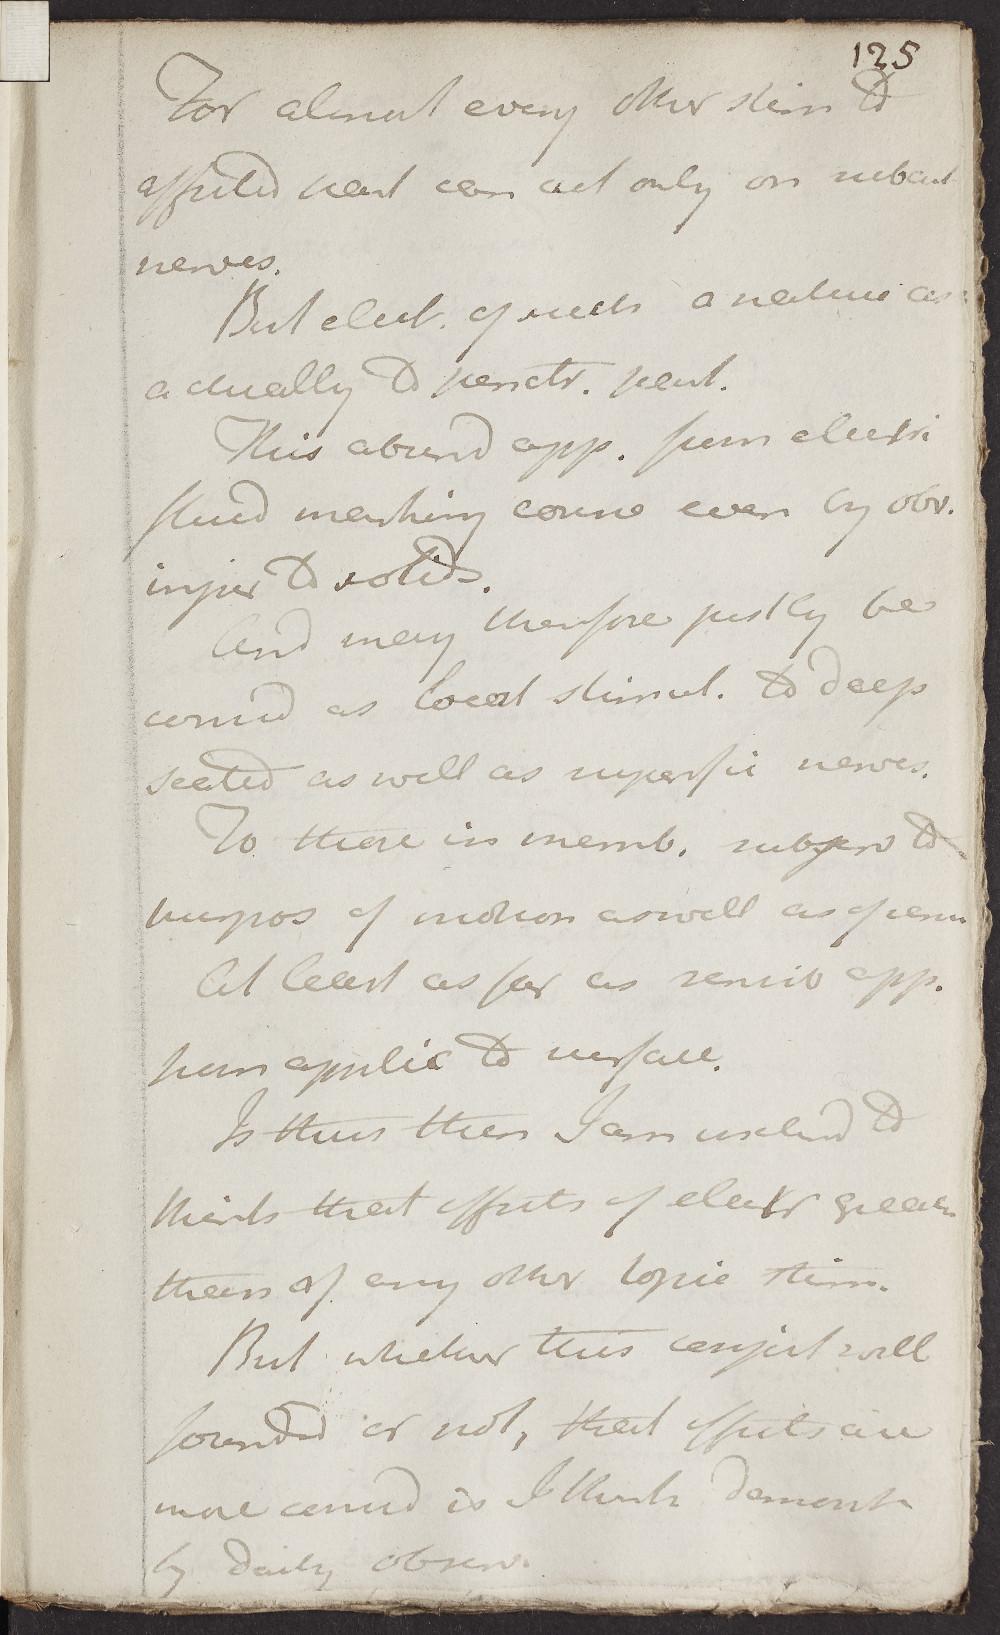 125
For almost every other stim to
affected part can act only on subcut
nerves.
But elect. of such a nature as
actually to penetr. part.
This abund app. from electri
fluid marking course even by obv.
injur to solids.
And may therefore justly be
consid as local stimul. to deep
seated as well as superfic nerves.
To those in memb. subserv to
purpos of motion as well as of sens
At least as far as sensib app.
from applic to surface.
In this then I am inclind to
think that effects of electr greater
than of any other topic stim.
But whether this conject well
founded or not, that effects are
more consid is I think demonstr
by daily observ.